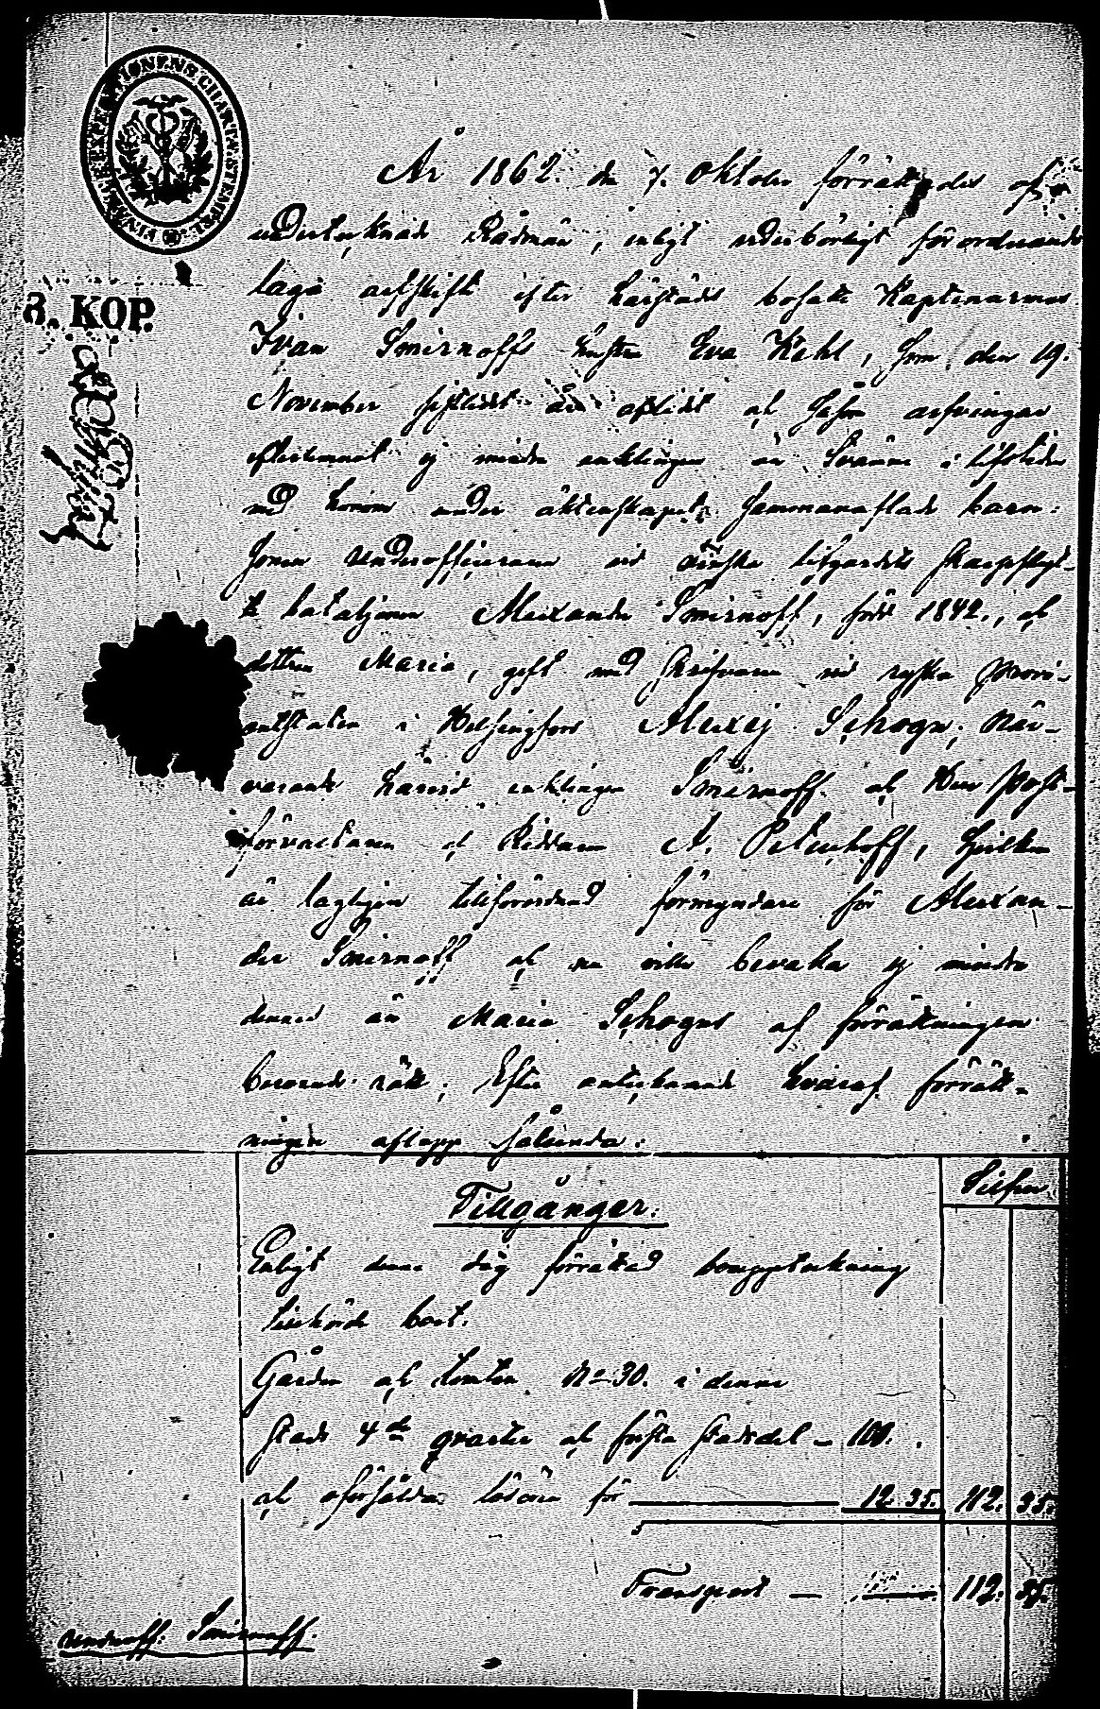 FINANCE EXPEDITIONENS CHARTÆ STEMPEL
8. KOP.
År 1862. den 7. Oktober förrättades af
undertecknad Rådman, enligt vederbörligt förordnande
laga arfskifte efter härstädes bosatte Kaptenarmus
Ivan Smirnoffs hustru Eva Kihl, som den 19.
November sistlidet år aflidit och såsom arfvingar
efterlemnat ej mindre enklingen än tvänne i lifstiden
med honom under äktenskapet sammanaflade barn:
sonen Underofficeraren vid finska lifgardets skarpskyt-
te bataljonen Alexander Smirnoff, född 1842., och
dottren Maria, gift med skrifvaren vid ryska provi-
antstaten i Helsingfors Alexej Schogn; När-
varande härvid enklingen Smirnoff och Herr Post-
förvaltaren och Riddaren A. Petenhoff, hvilken
är lagligen tillförordnad förmyndare för Alexan-
der Smirnoff och nu ville bevaka ej mindre
dennes än Maria Schogns af förrättningen
beroende rätt; Efter antecknande hvaraf förrätt-
ningen aflopp sålunda:
Silfver.
Tillgångar.
Enligt denna dag förrättad bouppteckning
tillhörde boet.
Gården och tomten No 30. i denna
stads 4de qvarter och första stadsdel – 100.
och oförsålda lösören för 12. 35. 112. 35.
Transport — 112. 35.
Underoff: Smirnoff.